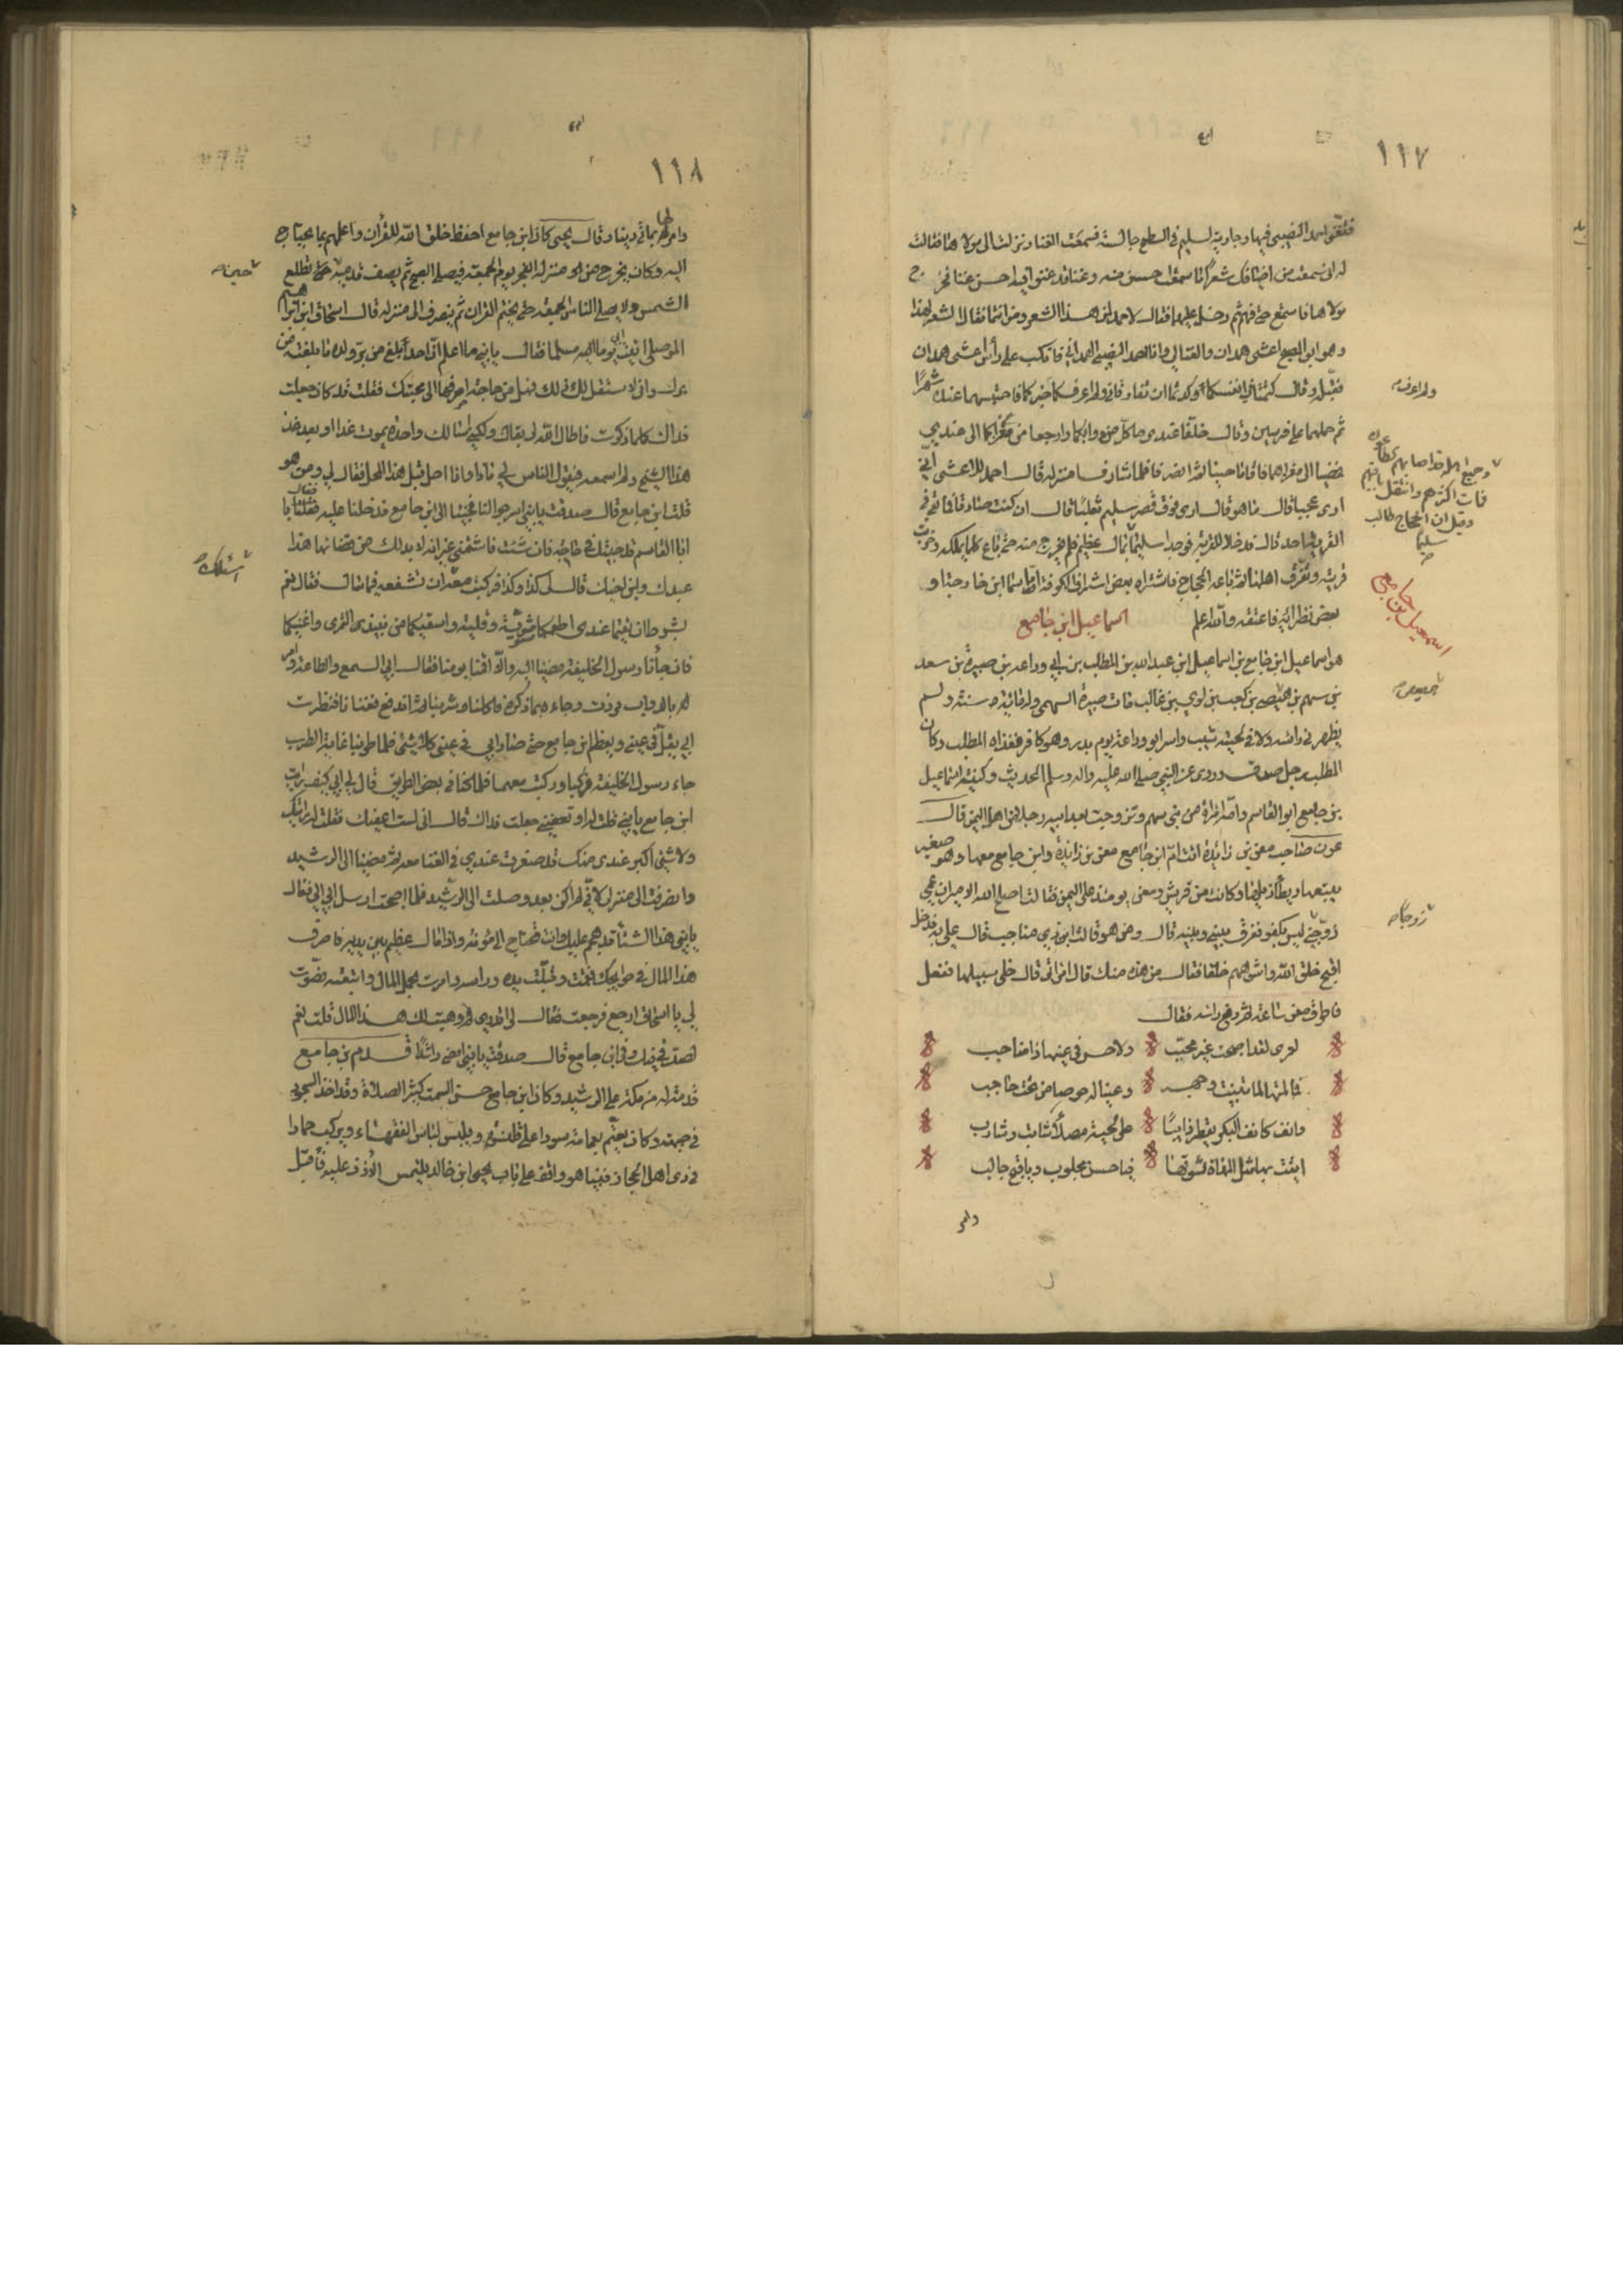 ١١٧
فتغنى احمد النصيبي فيها وجارية لسليم في السطح جالسة فسمعت الغنا ونزلت الى مولاها فقالت
له اني سمعت من اضيافك شعرا ما سمعت احسن منه وغنا قد غنوا فيه احسن غنا فخرج
مولاها فاستمع حتى فهم ثم دخل عليهما فقال لاحمد لمن هذا الشعر ومن انتما فقال الشعر لهذا
وهو ابو المصبح اعشى همدان والغنا لي وانا احمد النصيبي الهمداني فانكب على رأس اعشى همدان
فقبله وقال كتمتماني انفسكما وكدتما ان تفارقاني ولم اعرف خبركما فاحتبسهما عنده شهرا
ثم حملهما على فرسين وقال خلفا عندي ما كان من دوابكما وارجعا من مغزاكما الى عندي
فمضيا الى مغزاهما فاقاما حينا ثم انصرفا فلما شارفا منزله قال احمد للاعشى اني
ارى عجبا قال ما هو قال ارى فوق قصر سليم ثعلبا قال ان كنت صادقا فما بقي في
القرية احد قال فدخلا القرية فوجدا سليما بمال عظيم فلم يخرج منه حتى باع كلما يملكه وخربت
قريته وتفرق اهلها ثم باعه الحجاج فاشتراه بعض اشراف الكوفة اما اسما ابن خارجة او
بعض نظرائه فاعتقه والله اعلم اسماعيل ابن جامع
هو اسماعيل ابن جامع بن اسماعيل ابن عبد الله بن المطلب بن ابي وداعة بن صبيرة بن سعد
بن سهم بن هصيص بن كعب بن لوي بن غالب مات صبيرة السهمي وله مائة سنة ولم
يظهر في رأسه ولا في لحيته شيب واسر ابو وداعة يوم بدر وهو كافر ففداه المطلب وكان
المطلب رجل صدق وروى عن النبي صلى الله عليه واله وسلم الحديث وكنية اسماعيل
بن جامع ابو القاسم وامه امراة من بني سهم وتزوجت بعد ابيه رجلا من اهل اليمن قال
عون صاحب معن بن زائدة اتت ام ابن جامع معن بن زائدة وابن جامع معها وهو صغير
يتبعها ويطأ ذيلها وكانت من قريش ومعن يومئذ على اليمن فقالت اصلح الله الامير ان عمي
زوجني ليس بكفو ففرق بيني وبينه قال ومن هو قالت ابن ذي مناجب قال علي به فدخل
اقبح خلق الله واشوههم خلقا فقال من هذه منك قال امراتي قال خلى سبيلها ففعل
فاطرق معن ساعة ثم رفع راسه فقال
لعمري لقد اصبحت غير محبب ولا حسن في عينها ذا مناجب
فما لمتها لما تبينت وجهه وعينا له حوصا من تحت حاجب
وانف كانف البكر يقطر دايبا على لحية عصلاء شابت وشارب
اتيت بها مثل المهاة تسوقها فيا حسن مجلوب ويا قبح جالب
وامر
ولم اعرف
وجميع اهله قد اصابهم الطاعون
فمات اكثرهم وانتقل باقيهم
وقيل ان الحجاج طالب
سليما
اسمعيل بن جامع
هصيص
زوجا
١١٨
وامر لها بمأتي دينار وقال يحيى كان ابن جامع احفظ خلق الله للقرآن واعلمهم بما يحتاج
اليه وكان يخرج من منزله الفجر يوم الجمعة فيصلي الصبح ثم يصف قدميه حتى تطلع
الشمس ولا يصلي الناس الجمعة حتى يختم القران ثم ينصرف الى منزله قال اسحاق ابن ابراهيم
الموصلي اتيت ابي يوما اليه مسلما فقال يا بني ما اعلم ان احدا بلغ من بر ولده ما بلغته من
برك واني لاستقل لك ذلك فهل من حاجة اصرفها الى محبتك فقلت قد كان جعلت
فداك كلما ذكرت فاطال الله لي بقاك ولكني اسالك واحدة يموت غدا او بعد غد
هذا الشيخ ولم اسمعه فيقول الناس لي ماذا وانا احل قبل هذا المحل فقال لي ومن هو
قلت ابن جامع قال صدقت يا بني اسرجوا لنا فجئنا الى ابن جامع فدخلنا عليه فقال يا
ابا القاسم قد جئتك في حاجة فان شئت فاشتمني غير انه لا بد لك من قضائها هذا
عبدك وابن اخيك قال لي كذا وكذا فركبت معه اسالك ان تشفعه فيما سال فقال نعم
بشرط ان تقيما عندي اطعمكما مشوية وقلية واسقيكما من نبيذي التمري واغنيكما
فان جأنا رسول الخليفة مضينا اليه والا اقمنا يومنا فقال ابي السمع والطاعة وامر
بالدواب فردت وجاء بما ذكره فاكلنا وشربنا ثم اندفع فغنانا فنظرت
ابي يقل في عيني ويعظم ابن جامع حتى صار ابي في عيني كلا شئ فلما طربنا غاية الطرب
جاء رسول الخليفة فركبا وركبت معهما فلما كنا في بعض الطريق قال لي ابي كيف رايت
ابن جامع يا بني قلت له او تعفيني جعلت فداك قال اني لست اعفيك فقلت له رايتك
ولا شئ اكبر عندي منك قد صغرت عندي في الغنا معه ثم مضينا الى الرشيد
وانصرفت الى منزلي لاني لم اكن بعد وصلت الى الرشيد فلما اصبحت ارسل الي ابي فقال
يا بني هذا الشتاء قد هجم عليك وانت تحتاج الى مؤنة واذا مال عظيم بين يديه فاصرف
هذا المال في حوايجك فقمت وقبلت يده وراسه وامرت بحمل المال واتبعته فصوت
لي يا اسحاق ارجع فرجعت فقال لي اتدري لم وهبت لك هذا المال قلت نعم
لصدقي فيك وفي ابن جامع قال صدقت يا بني امض راشدا قدم بن جامع
قدمة له من مكة على الرشيد وكان ابن جامع حسن السمت كثير الصلاة وقد اخذ السجود
في جبهته وكان يعتم بعمامة سودا على قلنسوة ويلبس لباس الفقهاء ويركب حمارا
في زي اهل الحجاز فبينا هو واقف على باب يحيى ابن خالد يلتمس الاذن عليه فاقبل
حين
اسئلك